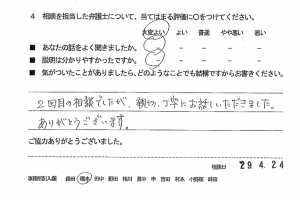 4 相談を担当した弁護士について、当てはまる評価に○をつけてください。
大変よい よい 普通 やや悪い 悪い
■ あなたの話をよく聞きましたか。
■ 説明は分かりやすかったですか。
■ 気がついたことがありましたら、どのようなことでも結構ですからお書きください。
2回目の相談でしたが、親切、丁寧にお話しいただきました。
ありがとうございます。
ご協力ありがとうございました。
相談日 29.4.24
事務所記入欄 森田 榎本 田中 野田 相川 眞中 申 吉田 村本 小野塚 時田